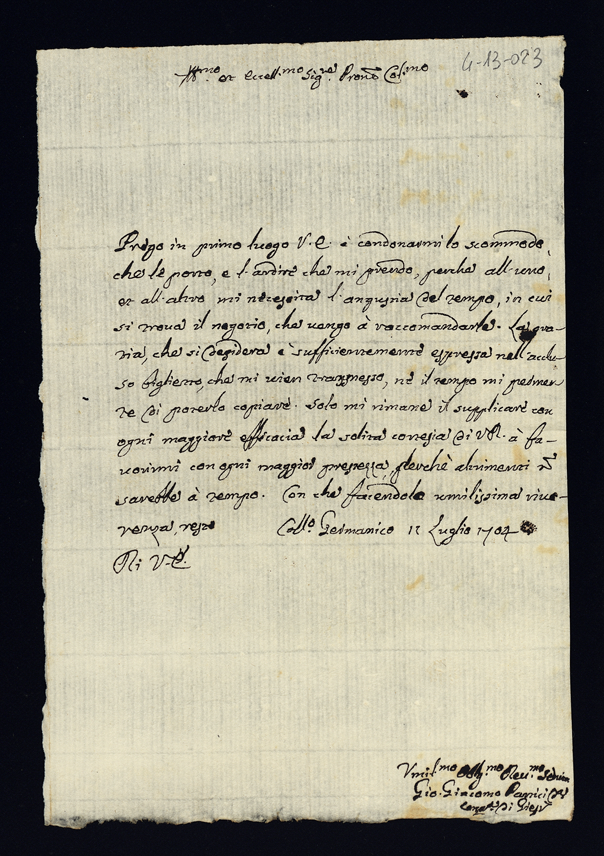 4-13-023
Ill.mo et Eccell.mo Sig.re Prone Col.mo
Prego in primo luogo V.E. à condonarmi lo scommodo,
che le porto, e l'ardire che mi prendo, perche all'uno,
et all'altro mi necessita l'angustia del tempo, in cui
si troua il negotio, che uengo à raccomandarle. La gra-
tia, che si desidera è sufficientemente espressa nell'acclu-
so biglietto, che mi uien trasmesso, nè il tempo mi permet-
te di poterlo copiare. Solo mi rimane il supplicare con
ogni maggiore efficacia la solita cortesia di V.E. à fa-
uorirmi con ogni maggior prestezza, perchè altrimenti ñ
sarebbe à tempo. Con che facendole umilissima riue-
renza, resto Coll.o Germanico 12 Luglio 1704
Di V.E.
Vmil.mo Obbl.mo Reu.mo
Gio. Giacomo Panici
Comp.a di Giesù